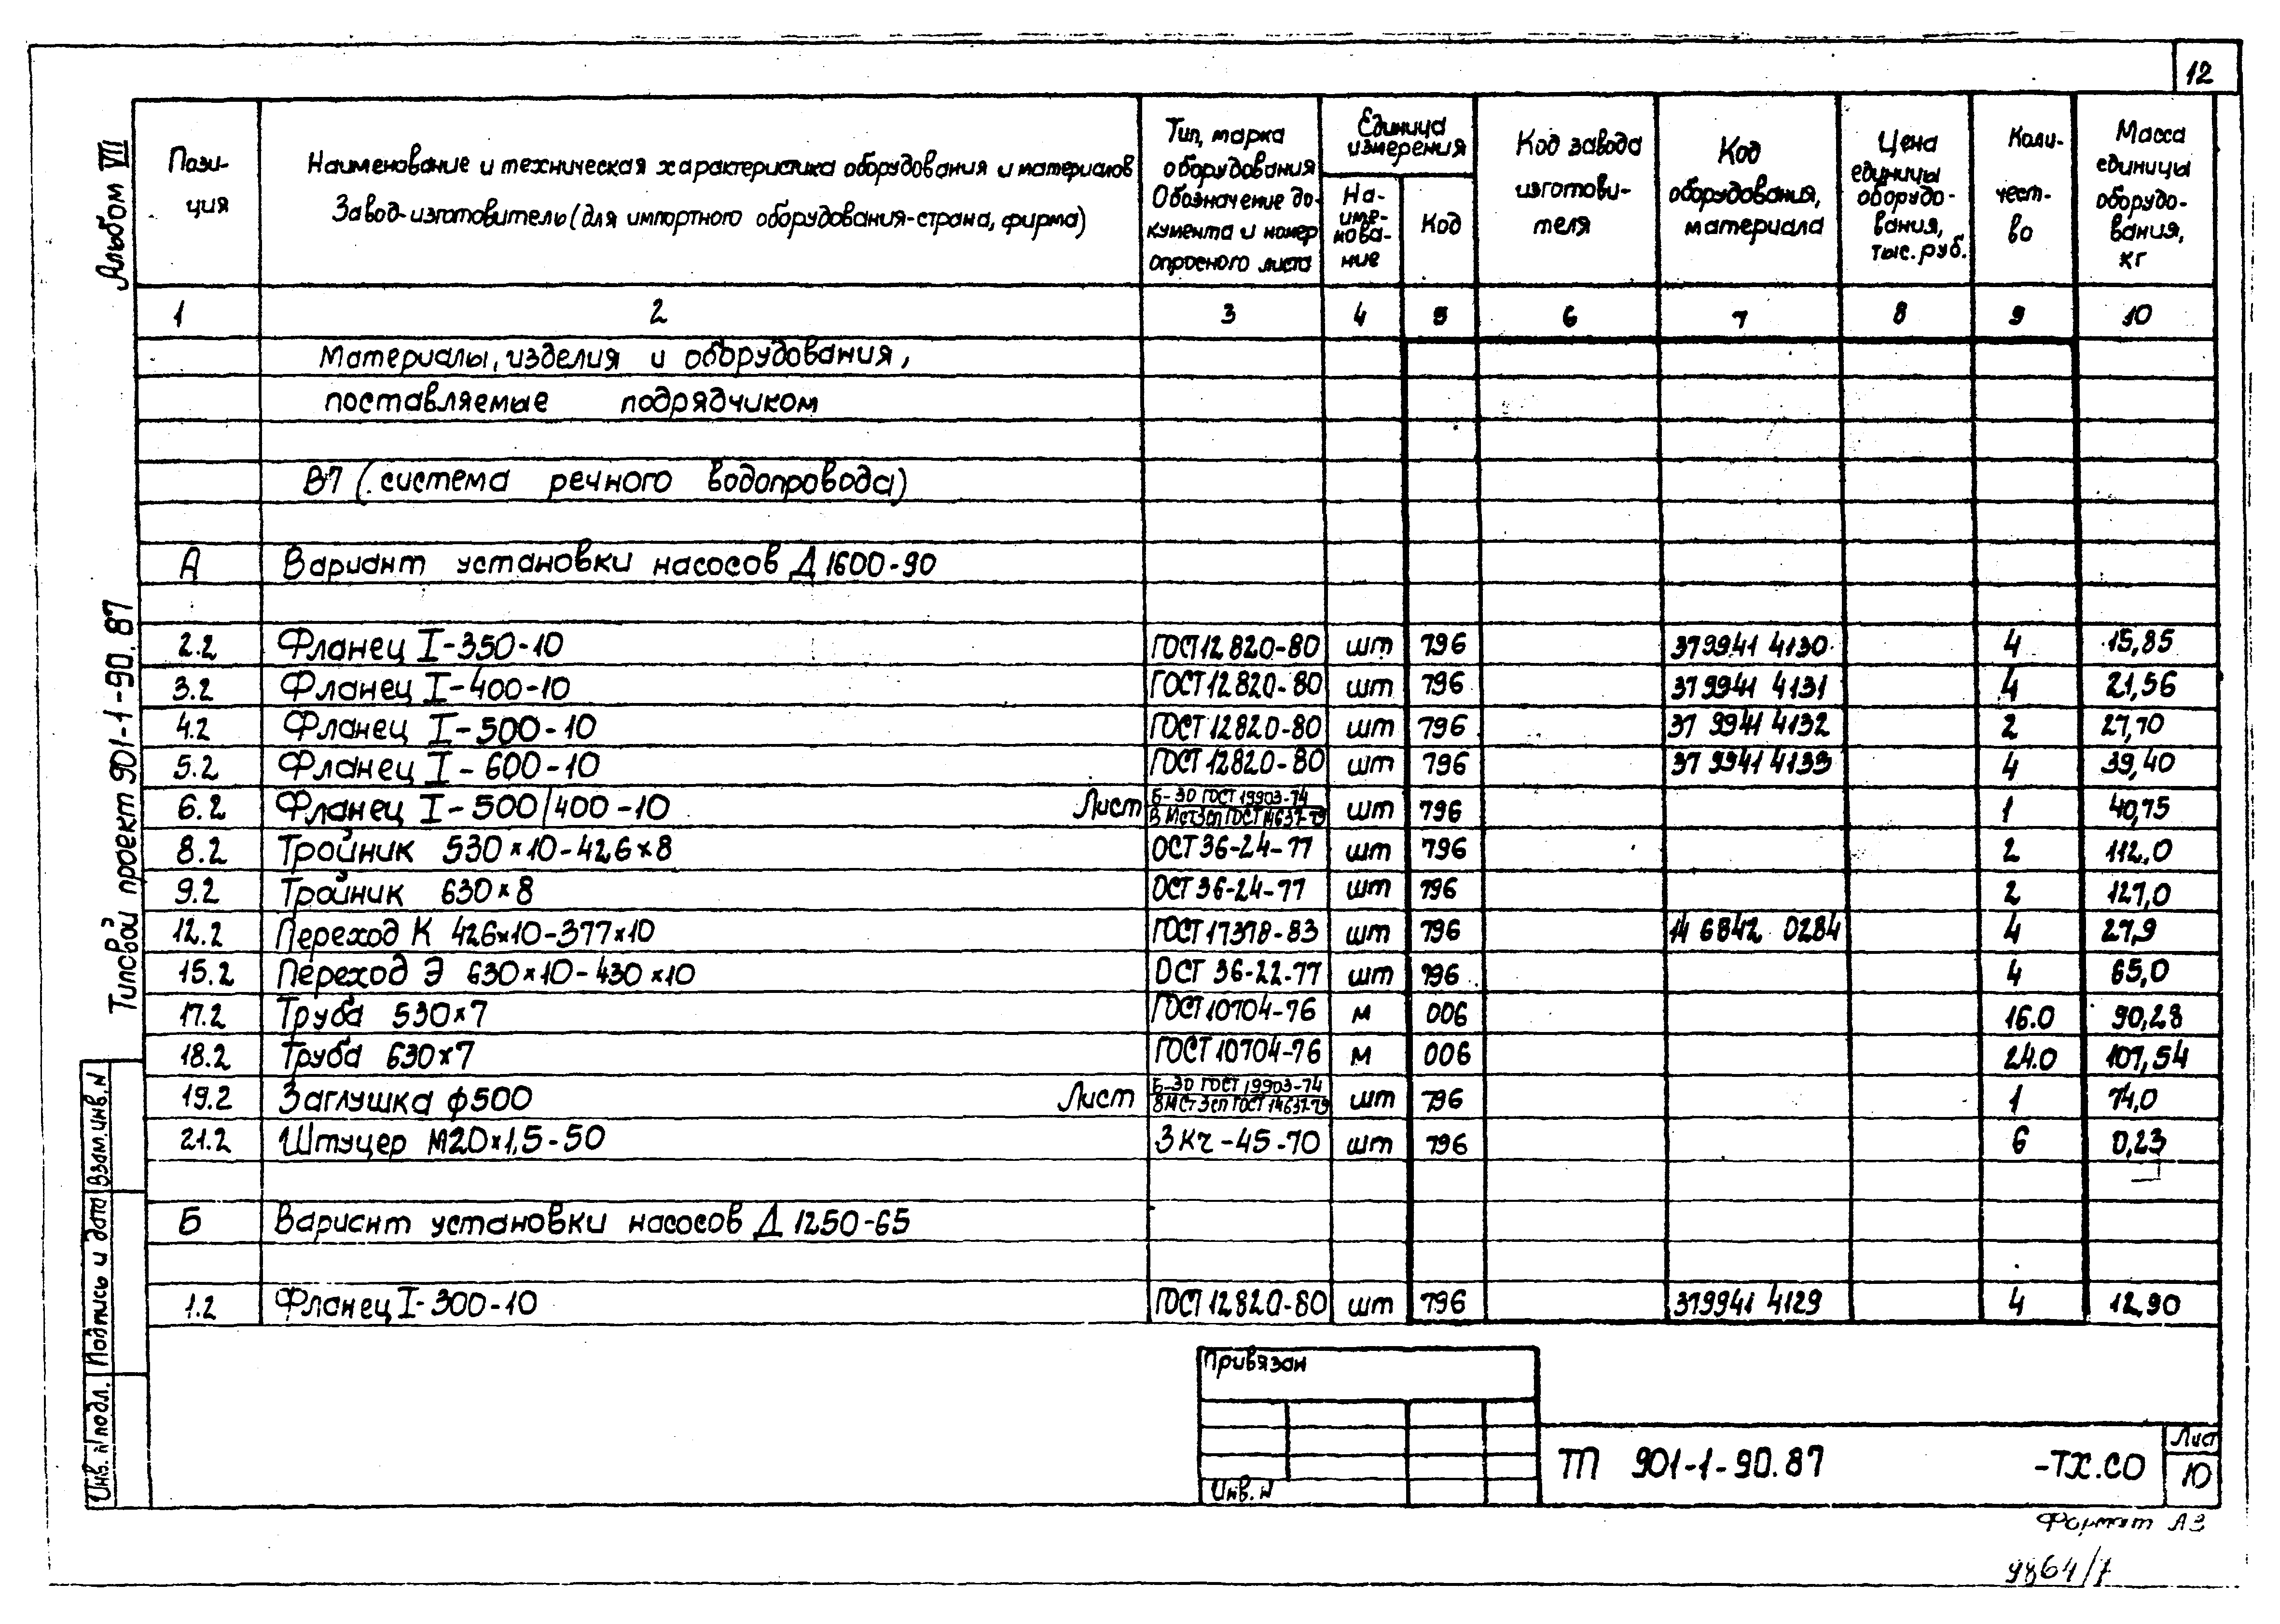 12
Альбом VII
Типовой проект 901-1-90.87
Пози-
ция
Наименование и техническая характеристика оборудования и материалов
Завод-изготовитель (для импортного оборудования-страна, фирма)
Тип, марка
оборудования
Обозначение до-
кумента и номер
опросного листа
Единица
измерения
На-
име-
нова-
ние
Код
Код завода
изготови-
теля
Код
оборудования,
материала
Цена
единицы
оборудо-
вания,
тыс. руб.
Коли-
чест-
во
Масса
единицы
оборудо-
вания,
кг
1 2 3 4 5 6 7 8 9 10
Материалы, изделия и оборудования,
поставляемые подрядчиком
В7 (система речного водопровода)
А Вариант установки насосов Д 1600-90
2.2 Фланец I-350-10 ГОСТ 12820-80 шт 796 379941 4130 4 15,85
3.2 Фланец I-400-10 ГОСТ 12820-80 шт 796 379941 4131 4 21,56
4.2 Фланец I-500-10 ГОСТ 12820-80 шт 796 37 9941 4132 2 27,70
5.2 Фланец I-600-10 ГОСТ 12820-80 шт 796 37 9941 4133 4 39,40
6.2 Фланец I-500/400-10 Лист Б-30 ГОСТ 19903-74 / ВМст3сп ГОСТ 14637-79 шт 796 1 40,75
8.2 Тройник 530×10-426×8 ОСТ 36-24-77 шт 796 2 112,0
9.2 Тройник 630×8 ОСТ 36-24-77 шт 796 2 127,0
12.2 Переход К 426×10-377×10 ГОСТ 17378-83 шт 796 14 6842 0284 4 27,9
15.2 Переход Э 630×10-430×10 ОСТ 36-22-77 шт 796 4 65,0
17.2 Труба 530×7 ГОСТ 10704-76 м 006 16.0 90,28
18.2 Труба 630×7 ГОСТ 10704-76 м 006 24.0 107,54
19.2 Заглушка ф500 Лист Б-30 ГОСТ 19903-74 / ВМСт3сп ГОСТ 14637-79 шт 796 1 74,0
21.2 Штуцер М20×1,5-50 ЗКЧ-45-70 шт 796 6 0,23
Б Вариант установки насосов Д 1250-65
1.2 Фланец I-300-10 ГОСТ 12820-80 шт 796 379941 4129 4 12,90
Взам. инв. N
Подпись и дата
Инв. N подл.
Привязан
Инв. N
ТП 901-1-90.87 -ТХ.СО
Лист
10
Формат А3
9864/7